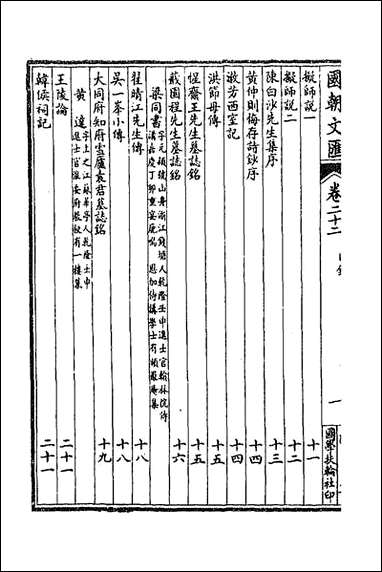 國朝文匯 卷二十二 目錄 一 國學扶輪社印
擬師說一 十一
擬師說二 十二
陳白沙先生集序 十三
黃仲則悔存詩鈔序 十四
芳西室記 十四
洪節母傳 十五
惺齋王先生墓誌銘 十五
蕺園程先生墓誌銘 十六
梁同書 字元穎號山舟浙江錢塘人乾隆壬申進士官翰林院侍
講嘉慶丁卯重宴鹿鳴 恩加侍講學士有頻羅庵集
翟晴江先生傳 十八
吳一峯小傳 十八
大同府知府雪廬袁君墓誌銘 十九
黃達 字上之江蘇華亭人乾隆壬申
進士官淮安府教授有一樓集
王陵論 二十一
韓侯祠記 二十一